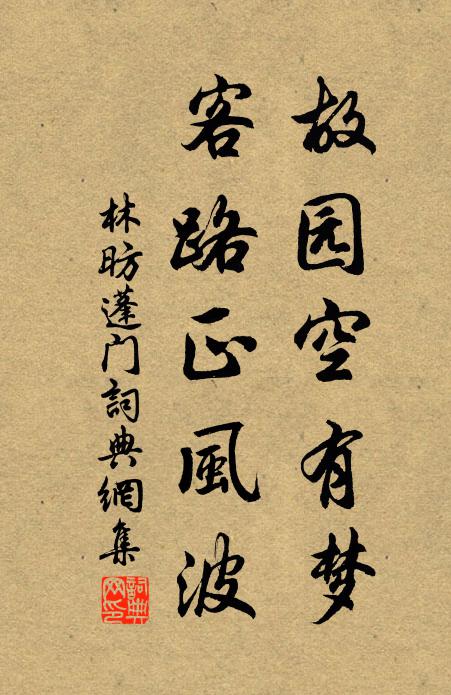 故园空有梦
客路正風波
林昉蓬门詞典網集
詞典网印